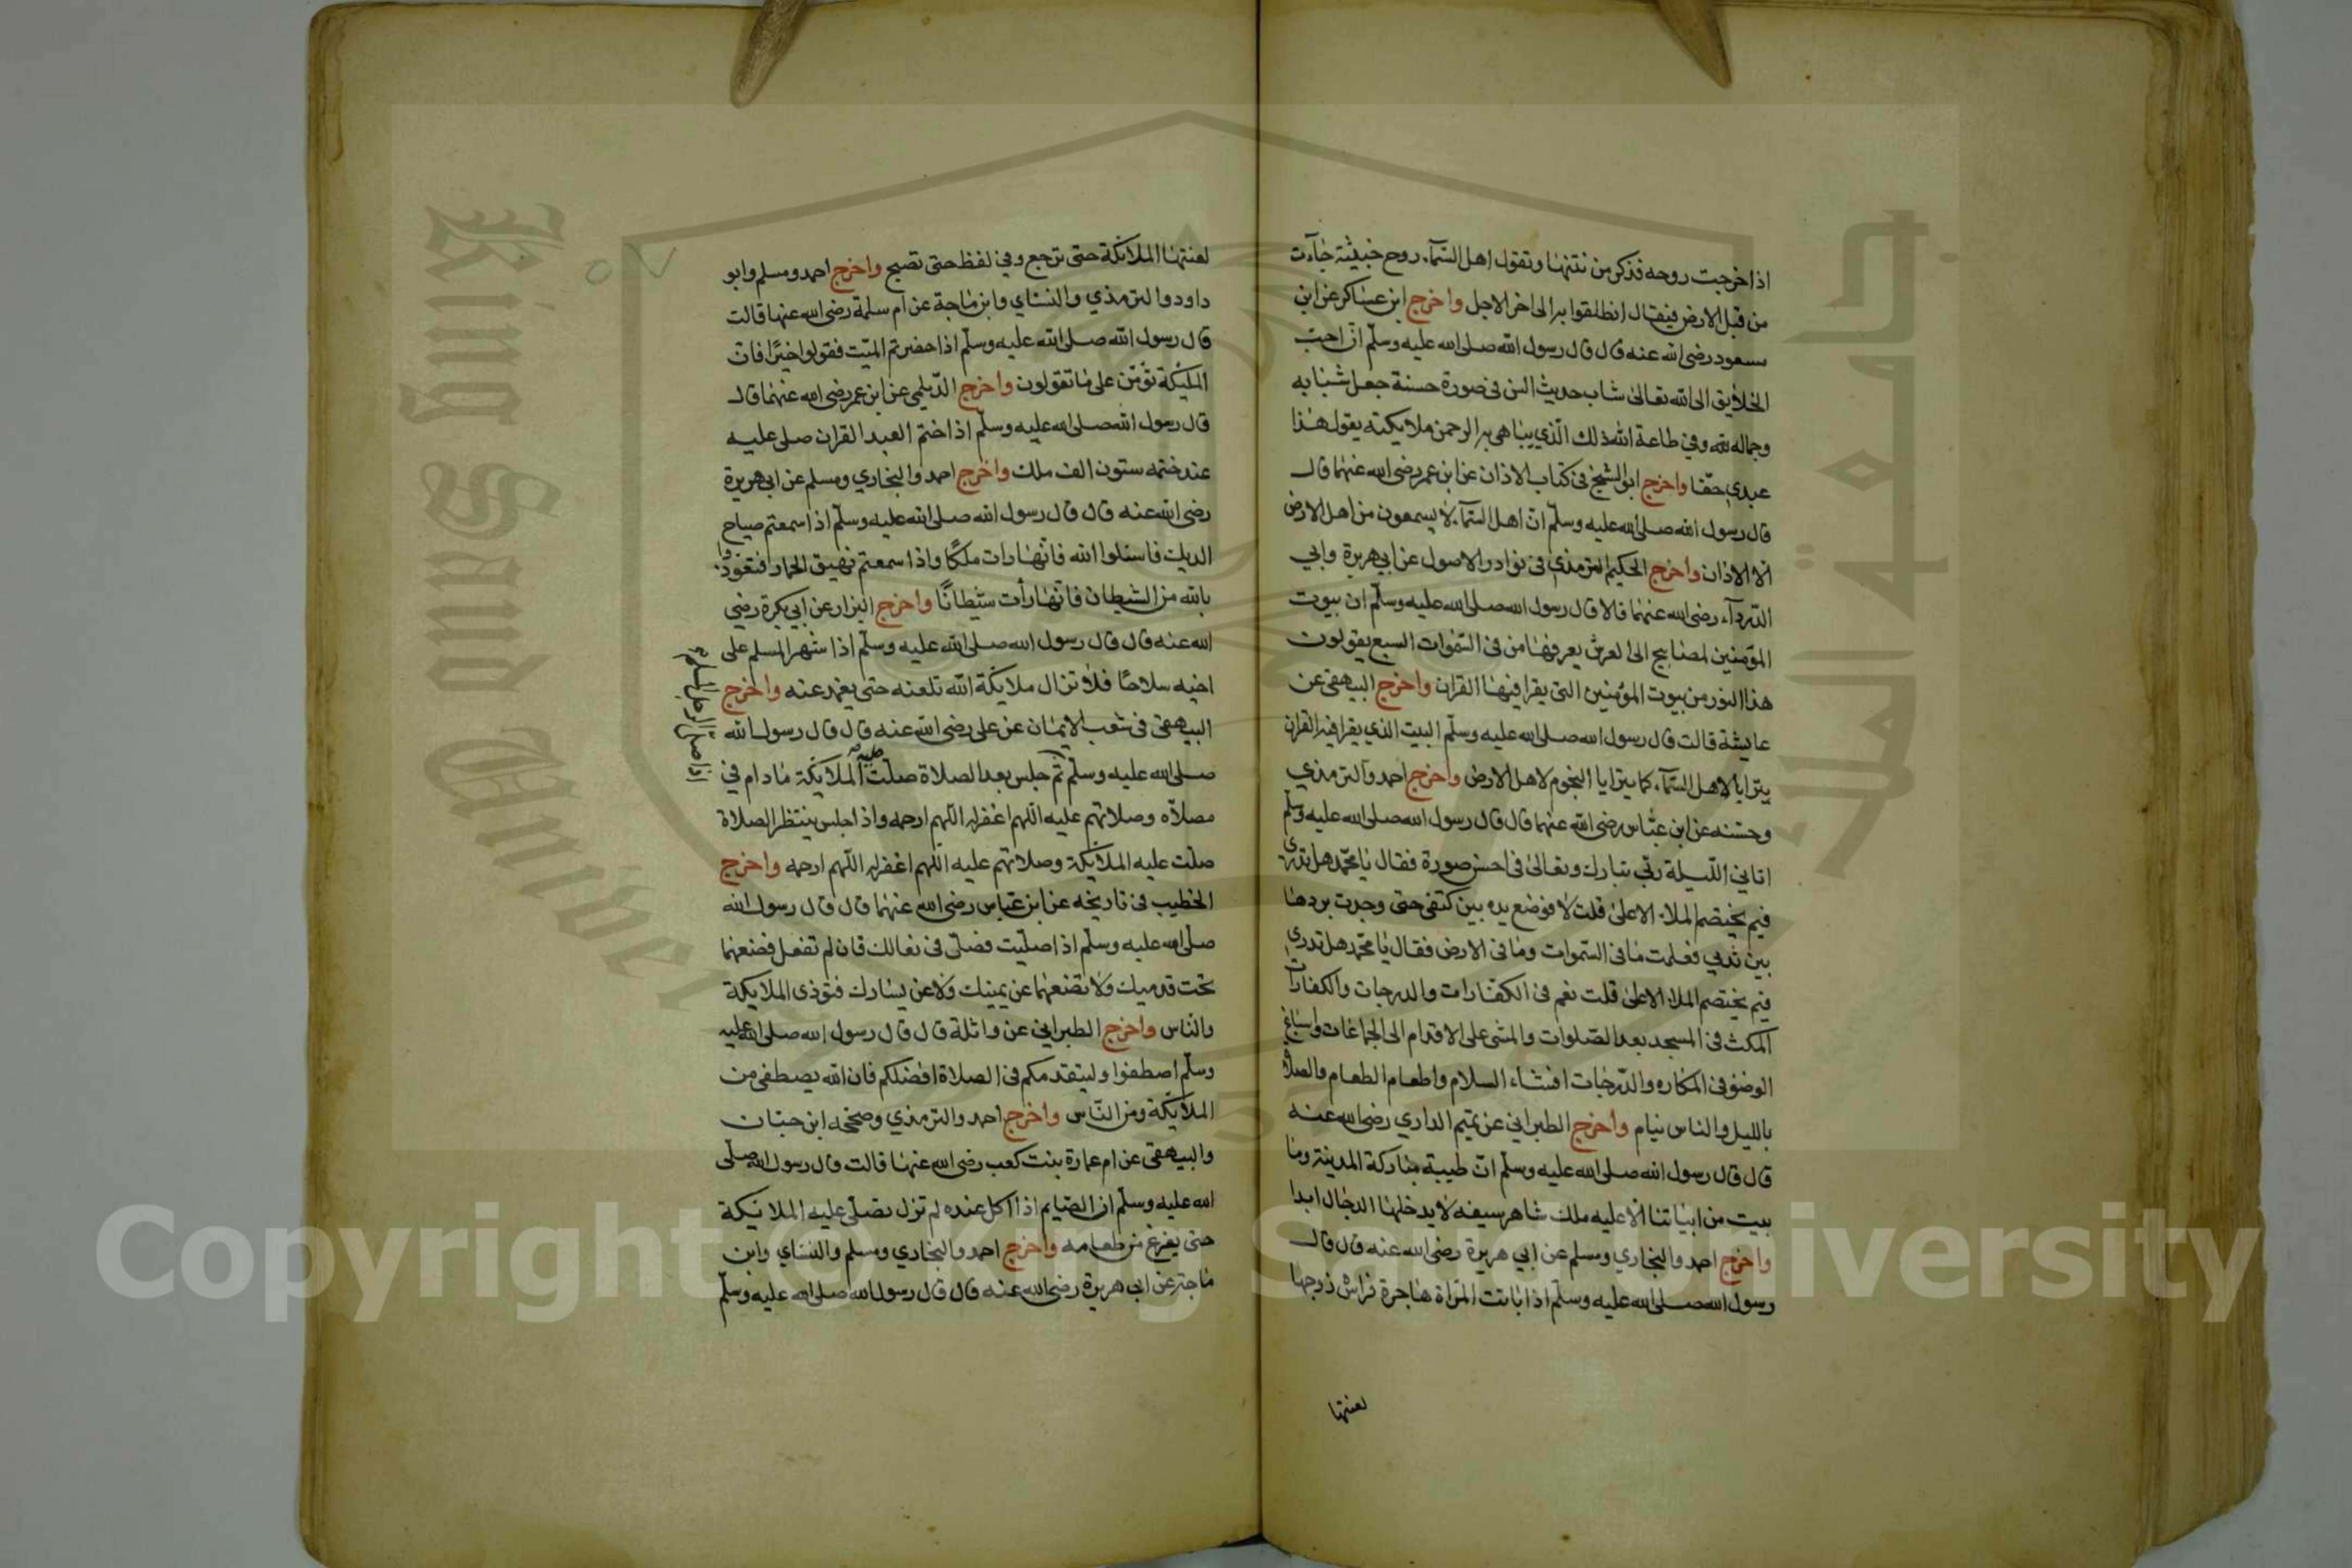 اذا خرجت روحه فذكر من نتنها وتقول اهل السّمآء روح خبيثة جآءت
من قبل الارض فيقال انطلقوا به الى اخر الاجل واخرج ابن عساكر عن ابن
مسعود رضى الله عنه قال قال رسول الله صلى الله عليه وسلّم انّ احبّ
الخلايق الى الله تعالى شاب حديث السن فى صورة حسنة جعل شبابه
وجماله لله وفي طاعة الله ذلك الّذي يباهى به الرحمن ملايكته يقول هذا
عبدي حقّا واخرج ابو الشيخ فى كتاب الاذان عن ابن عمر رضى الله عنهما قال
قال رسول الله صلى الله عليه وسلّم انّ اهل السّمآء لا يسمعون من اهل الارض
الّا الاذان واخرج الحكيم الترمذي فى نوادر الاصول عن ابي هريرة وابي
الدّردآء رضى الله عنهما قالا قال رسول الله صلى الله عليه وسلّم ان بيوت
المؤمنين لمصابيح الى العرش يعرفها من فى السّموات السبع يقولون
هذا النور من بيوت المؤمنين التى يقرا فيها القران واخرج البيهقى عن
عايشة قالت قال رسول الله صلى الله عليه وسلّم البيت الذي يقرا فيه القران
يترايا لاهل السّمآء كما يترايا النجوم لاهل الارض واخرج احمد والترمذي
وحسّنه عن ابن عبّاس رضى الله عنهما قال قال رسول الله صلى الله عليه وسلّم
اتاني اللّيلة ربّي تبارك وتعالى فى احسن صورة فقال يا محمّد هل تدرى
فيم يختصم الملاء الاعلى قلت لا فوضع يده بين كتفى حتى وجدت بردها
بين ثديي فعلمت ما فى السّموات وما فى الارض فقال يا محمّد هل تدرى
فيم يختصم الملاء الاعلى قلت نعم فى الكفّارات والدرجات والكفارات
المكث فى المسجد بعد الصّلوات والمشى على الاقدام الى الجماعات واسباغ
الوضؤ فى المكاره والدّرجات افشاء السلام واطعام الطعام والصلاة
بالليل والناس نيام واخرج الطبراني عن تميم الداري رضى الله عنه
قال قال رسول الله صلى الله عليه وسلّم انّ طيبة مباركة المدينة وما
بيت من ابياتنا الّا عليه ملك شاهر سيفه لا يدخلها الدجال ابدا
واخرج احمد والبخاري ومسلم عن ابي هريرة رضى الله عنه قال قال
رسول الله صلى الله عليه وسلّم اذا باتت المرّاة هاجرة فراش زوجها
لعنتها
لعنتها الملائكة حتى ترجع وفي لفظ حتى تصبح واخرج احمد ومسلم وابو
داود والترمذي والنساي وابن ماجة عن ام سلمة رضى الله عنها قالت
قال رسول الله صلى الله عليه وسلّم اذا حضرتم الميّت فقولوا خيرًا فانّ
المليكة تؤمّن على ما تقولون واخرج الدّيلمي عن ابن عمر رضى الله عنهما قال
قال رسول الله صلى الله عليه وسلّم اذا ختم العبد القران صلى عليه
عند ختمه ستون الف ملك واخرج احمد والبخاري ومسلم عن ابى هريرة
رضى الله عنه قال قال رسول الله صلى الله عليه وسلّم اذا سمعتم صياح
الديك فاسئلوا الله فانّها رات ملكًا واذا سمعتم نهيق الحمار فتعوّذوا
بالله من الشيطان فانّها رأت شيطانًا واخرج البزار عن ابي بكرة رضي
الله عنه قال قال رسول الله صلى الله عليه وسلّم اذا شهر المسلم على
اخيه سلاحًا فلا تزال ملايكة الله تلعنه حتى يغمد عنه واخرج
البيهقى فى شعب الايمان عن على رضى الله عنه قال قال رسول الله
صلى الله عليه وسلّم ثمّ جلس بعد الصلاة صلّت عليه الملايكة مادام في
اذا صلى الرجل المسلم
مصلّاه وصلاتهم عليه اللّهم اغفر له اللّهم ارحمه واذا جلس ينتظر الصلاة
صلّت عليه الملايكة وصلاتهم عليه اللّهم اغفر له اللّهم ارحمه واخرج
الخطيب فى تاريخه عن ابن عبّاس رضى الله عنهما قال قال رسول الله
صلّى الله عليه وسلّم اذا صلّيت فصلّ فى نعالك فان لم تفعل فضعهما
تحت قدميك ولا تضعهما عن يمينك ولا عن يسارك فتوذى الملايكة
والناس واخرج الطبراني عن واثلة قال قال رسول الله صلى الله عليه
وسلّم اصطفوا وليتقدمكم فى الصلاة افضلكم فان الله يصطفى من
الملايكة ومن النّاس واخرج احمد والترمذي وصححه ابن حبّان
والبيهقى عن ام عمارة بنت كعب رضى الله عنها قالت قال رسول الله صلّى
الله عليه وسلّم ان الصّايم اذا اكل عنده لم تزل تصلّى عليه الملائكة
حتى يفرغ من طعامه واخرج احمد والبخاري ومسلم والنساي وابن
ماجة عن ابى هريرة رضى الله عنه قال قال رسول الله صلى الله عليه وسلّم
جامعة الملك سعود
King Saud University
Copyright © King Saud University